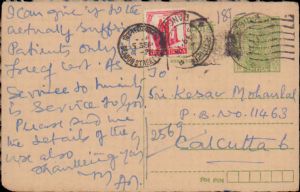 I can give it to the
actually suffering
Patients only
free of cost. As
Service to humanity
is Service to God.
Please send me
the details of the
use also
Thanking you
To
Sri Kesar Mohanlal
P.B. No. 11463
Calcutta 6
PIN